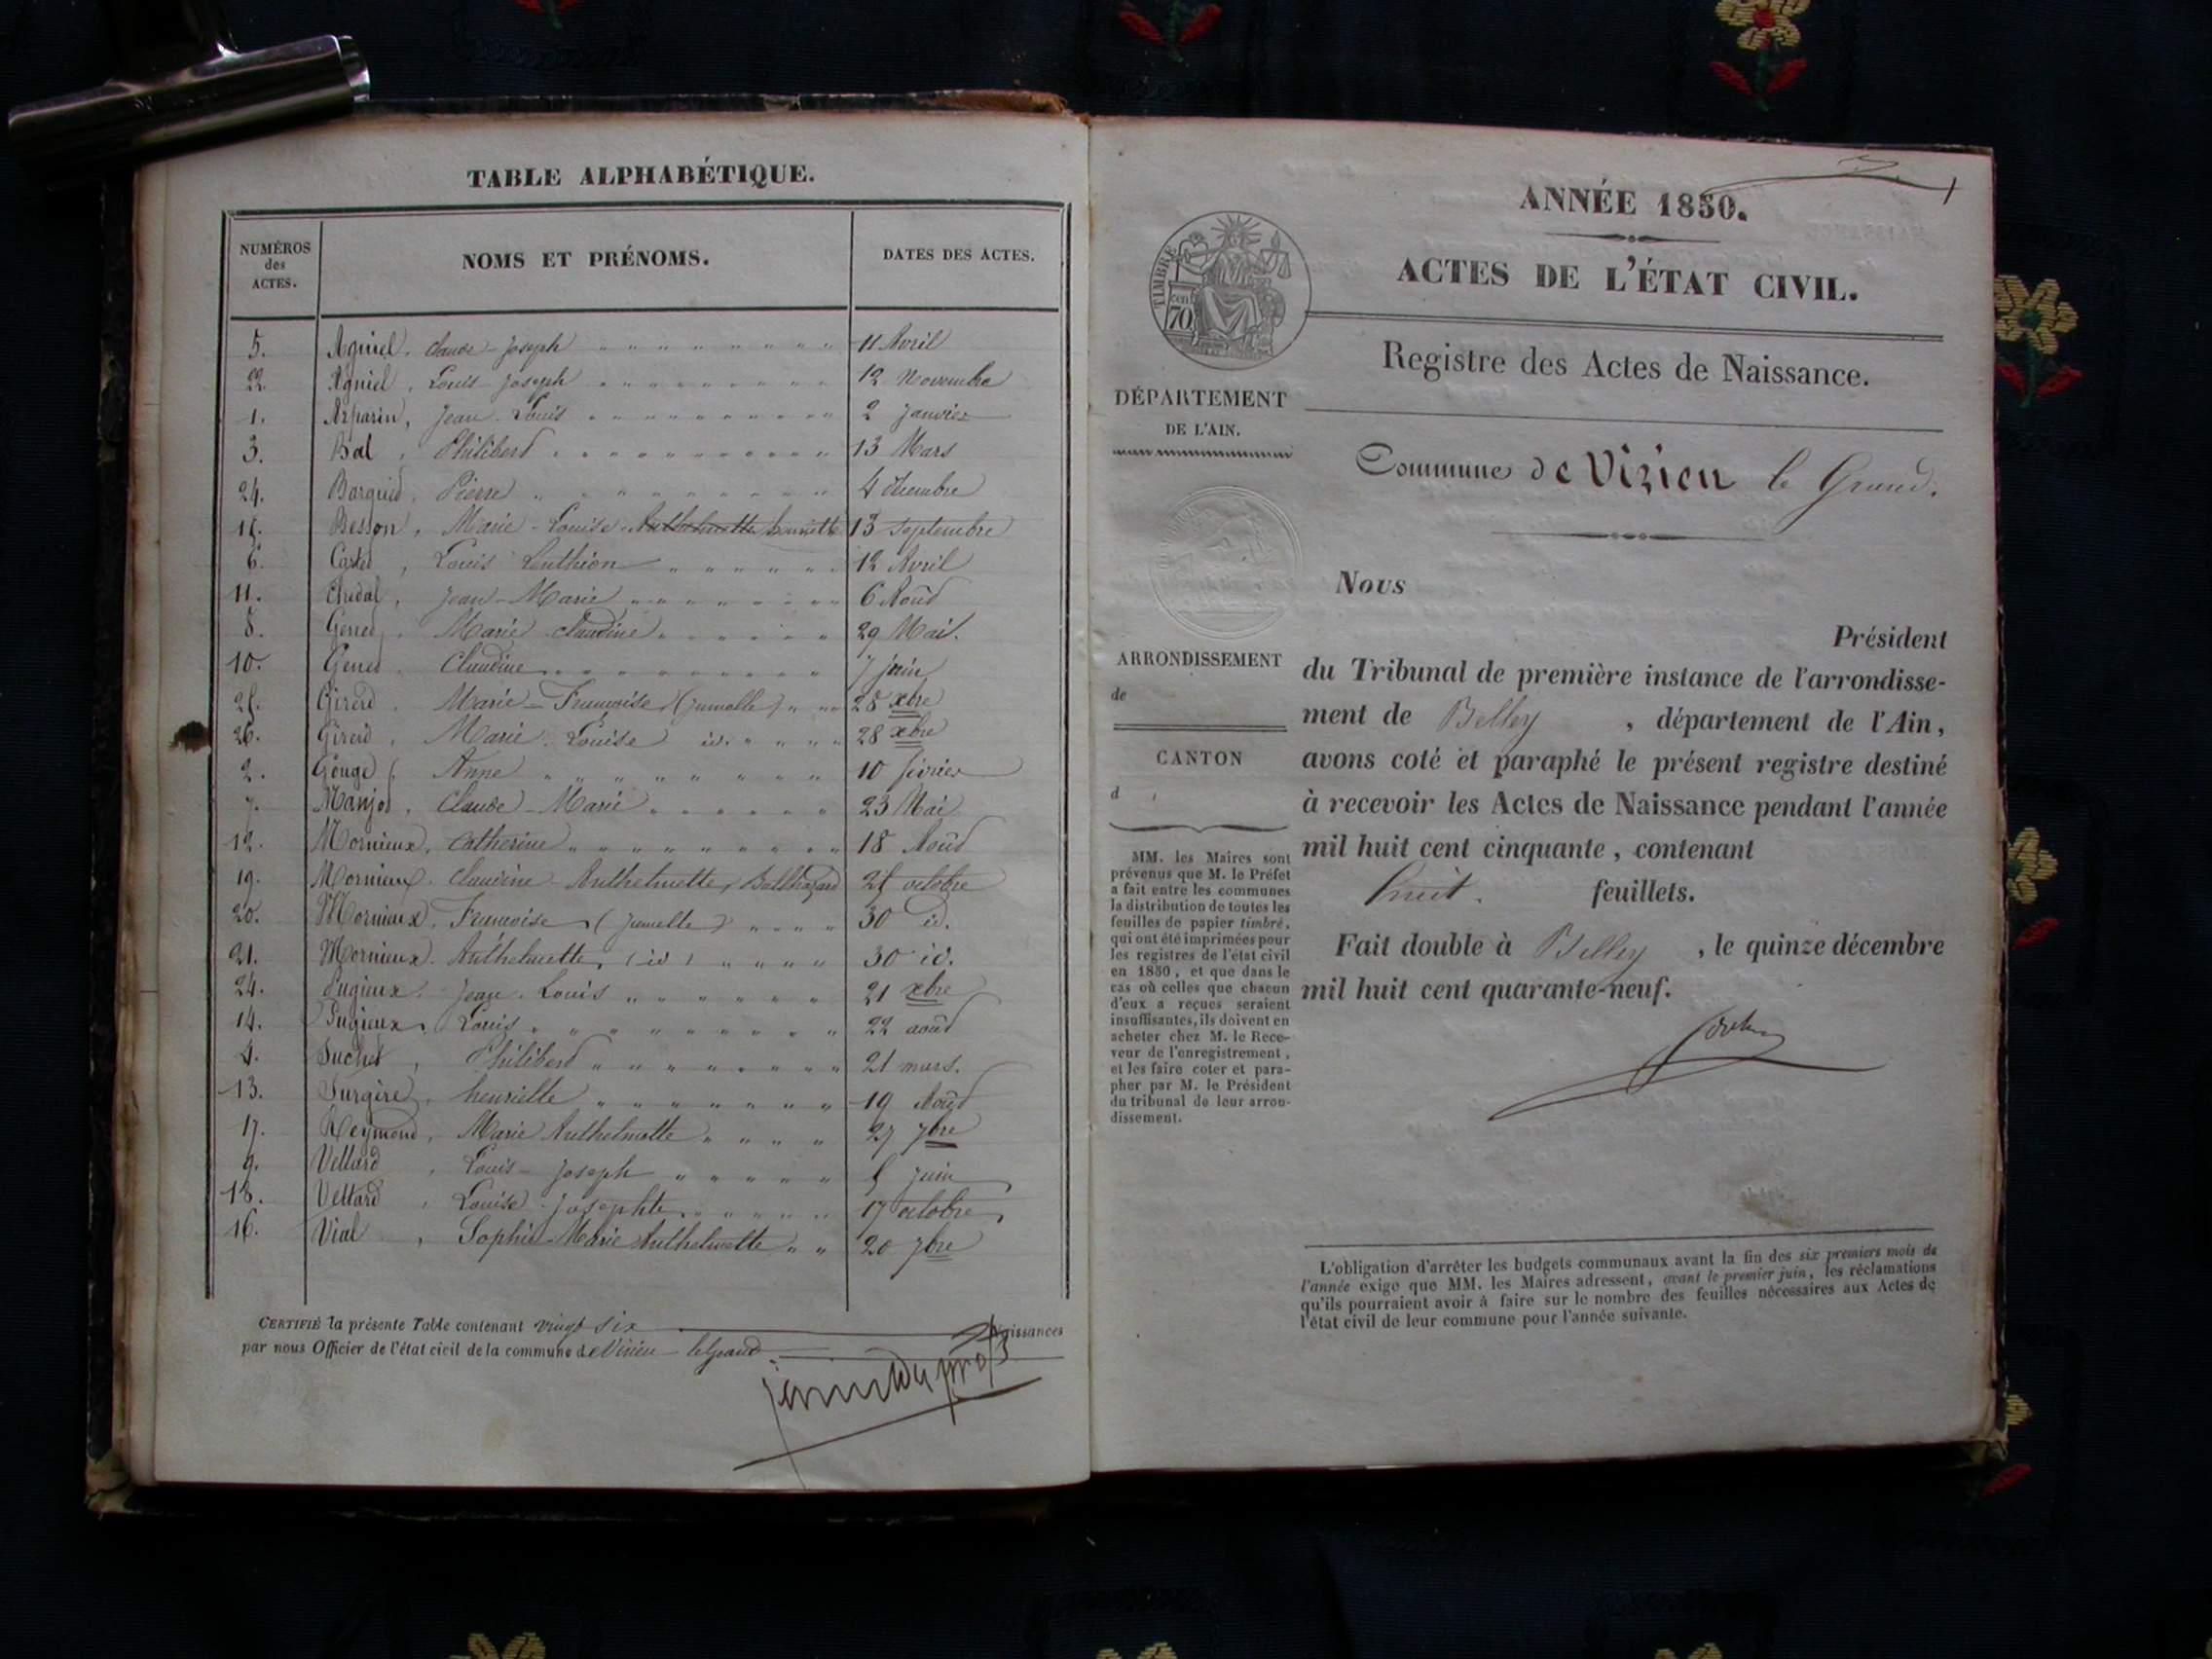 TABLE ALPHABÉTIQUE.
NUMÉROS des ACTES.
NOMS ET PRÉNOMS.
DATES DES ACTES.
5. Aguiel, Claude-Joseph 11 Avril
22. Aguiel, Louis-Joseph 12 Novembre
1. Arparin, Jean-Louis 2 janvier
3. Bal, Philiberd 13 Mars
24. Pierre 4
Besson, Marie-Louise Anthelmette henriette 13 septembre
6. Louis 12 Avril
11. Chedal, Jean-Marie 6 Aoûd
8. Gened, Marie Claudine 29 Mai.
10. Gened. Claudine 7 juin
25. Girerd, Marie-Francoise (jumelle) 28 xbre
26. Girerd, Marie-Louise id. 28 xbre
2. Gouge, Anne 10 février
7. Manjod, Claude-Marie 23 Mai
12. Mornieux, Catherine 18 Aoûd
19. Mornieux. Claudine Anthelmette, Balthazard 25 octobre
20. Mornieux, Francoise (jumelle) 30 id.
21. Mornieux. Anthelmette, (id) 30 id.
24. Pugieux. Jean-Louis 21 xbre
14. Pugieux, Louis 22 aoûd
4. Suchet, Philiberd 21 mars.
13. Surgère, henriette 19 Aoûd
17. Reymond, Marie Anthelmette 27 7bre
9. Vettard, Louis-Joseph 5 juin
18. Vettard, Louise-Josephte 17 octobre
16. Vial, Sophie-Marie Anthelmette 20 7bre
CERTIFIÉ la présente Table contenant vingt six Naissances
par nous Officier de l'état civil de la commune de Virieu-le Grand
ANNÉE 1850.
ACTES DE L'ÉTAT CIVIL.
Registre des Actes de Naissance.
TIMBRE
70 cent
DÉPARTEMENT
DE L'AIN.
Commune de Virieu le Grand.
Nous
Président
du Tribunal de première instance de l'arrondisse-
ment de Belley, département de l'Ain,
avons coté et paraphé le présent registre destiné
à recevoir les Actes de Naissance pendant l'année
mil huit cent cinquante, contenant
huit. feuillets.
Fait double à Belley, le quinze décembre
mil huit cent quarante-neuf.
ARRONDISSEMENT
de
CANTON
d
MM. les Maires sont
prévenus que M. le Préfet
a fait entre les communes
la distribution de toutes les
feuilles de papier timbré,
qui ont été imprimées pour
les registres de l'état civil
en 1850, et que dans le
cas où celles que chacun
d'eux a reçues seraient
insuffisantes, ils doivent en
acheter chez M. le Rece-
veur de l'enregistrement,
et les faire coter et para-
pher par M. le Président
du tribunal de leur arron-
dissement.
L'obligation d'arrêter les budgets communaux avant la fin des six premiers mois de
l'année exige que MM. les Maires adressent, avant le premier juin, les réclamations
qu'ils pourraient avoir à faire sur le nombre des feuilles nécessaires aux Actes de
l'état civil de leur commune pour l'année suivante.